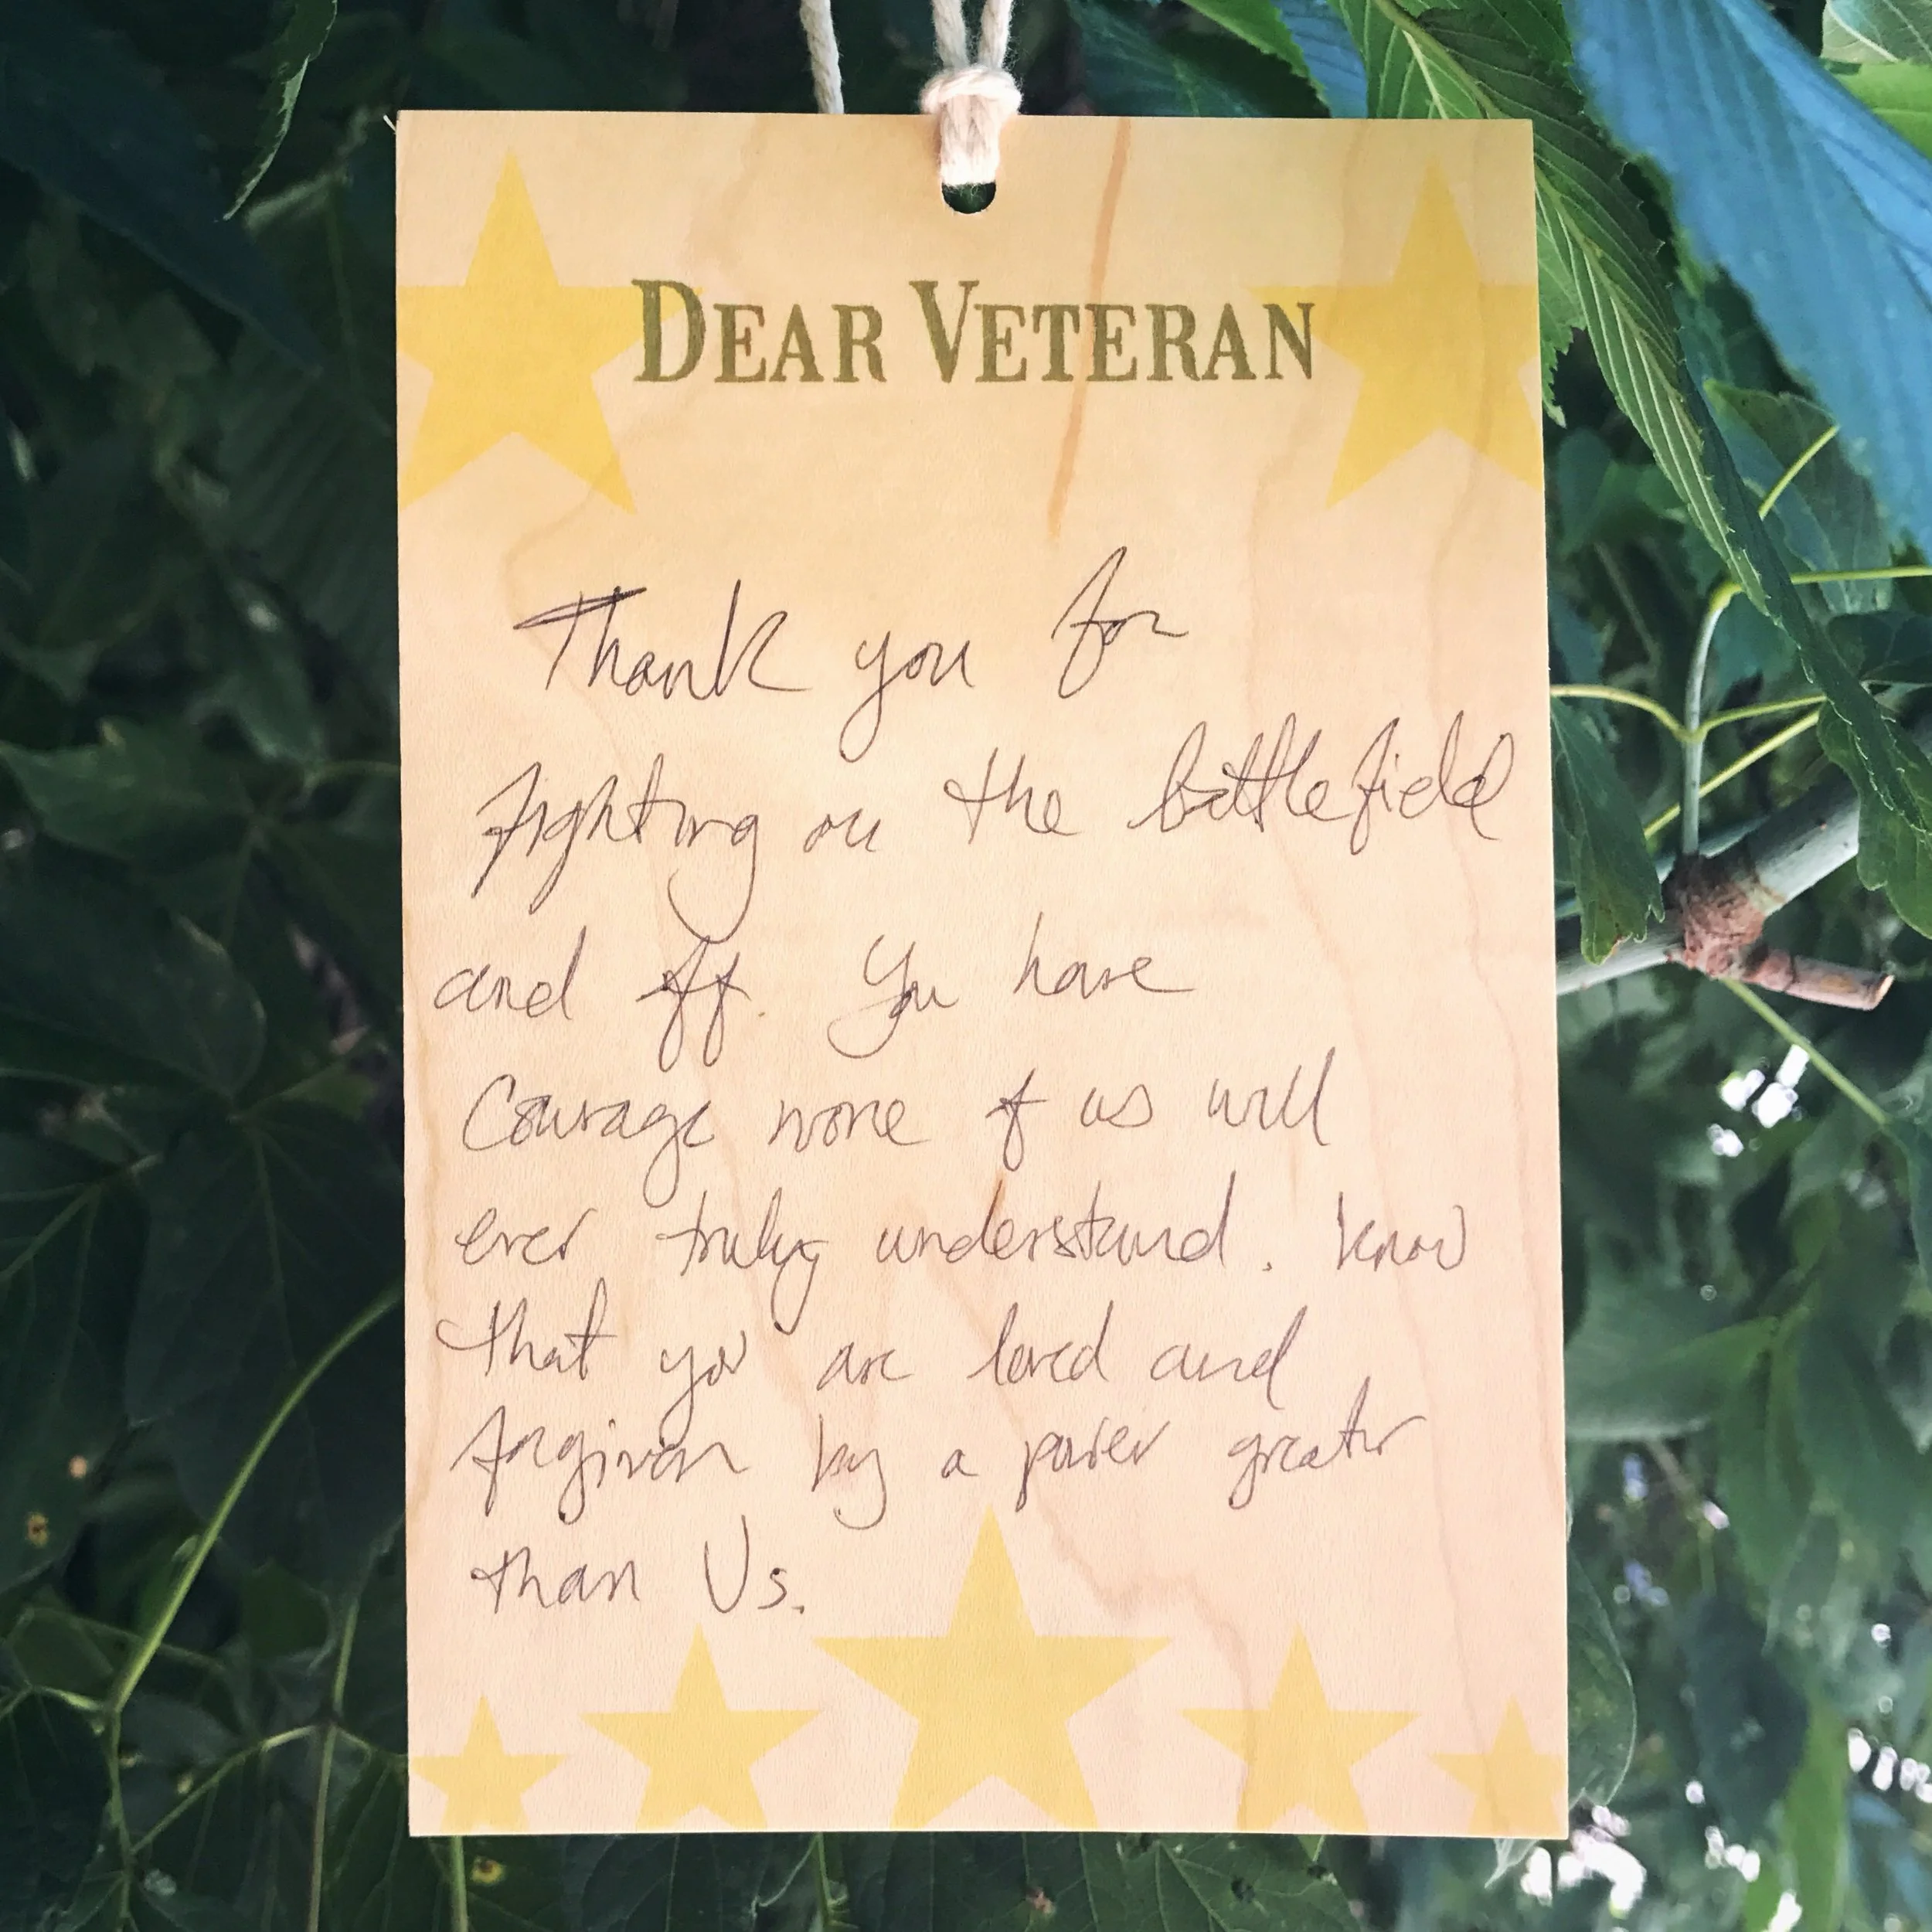 DEAR VETERAN
Thank you for
fighting on the battlefield
and off. You have
Courage none of us will
ever truly understand. Know
that you are loved and
forgiven by a power greater
than Us.